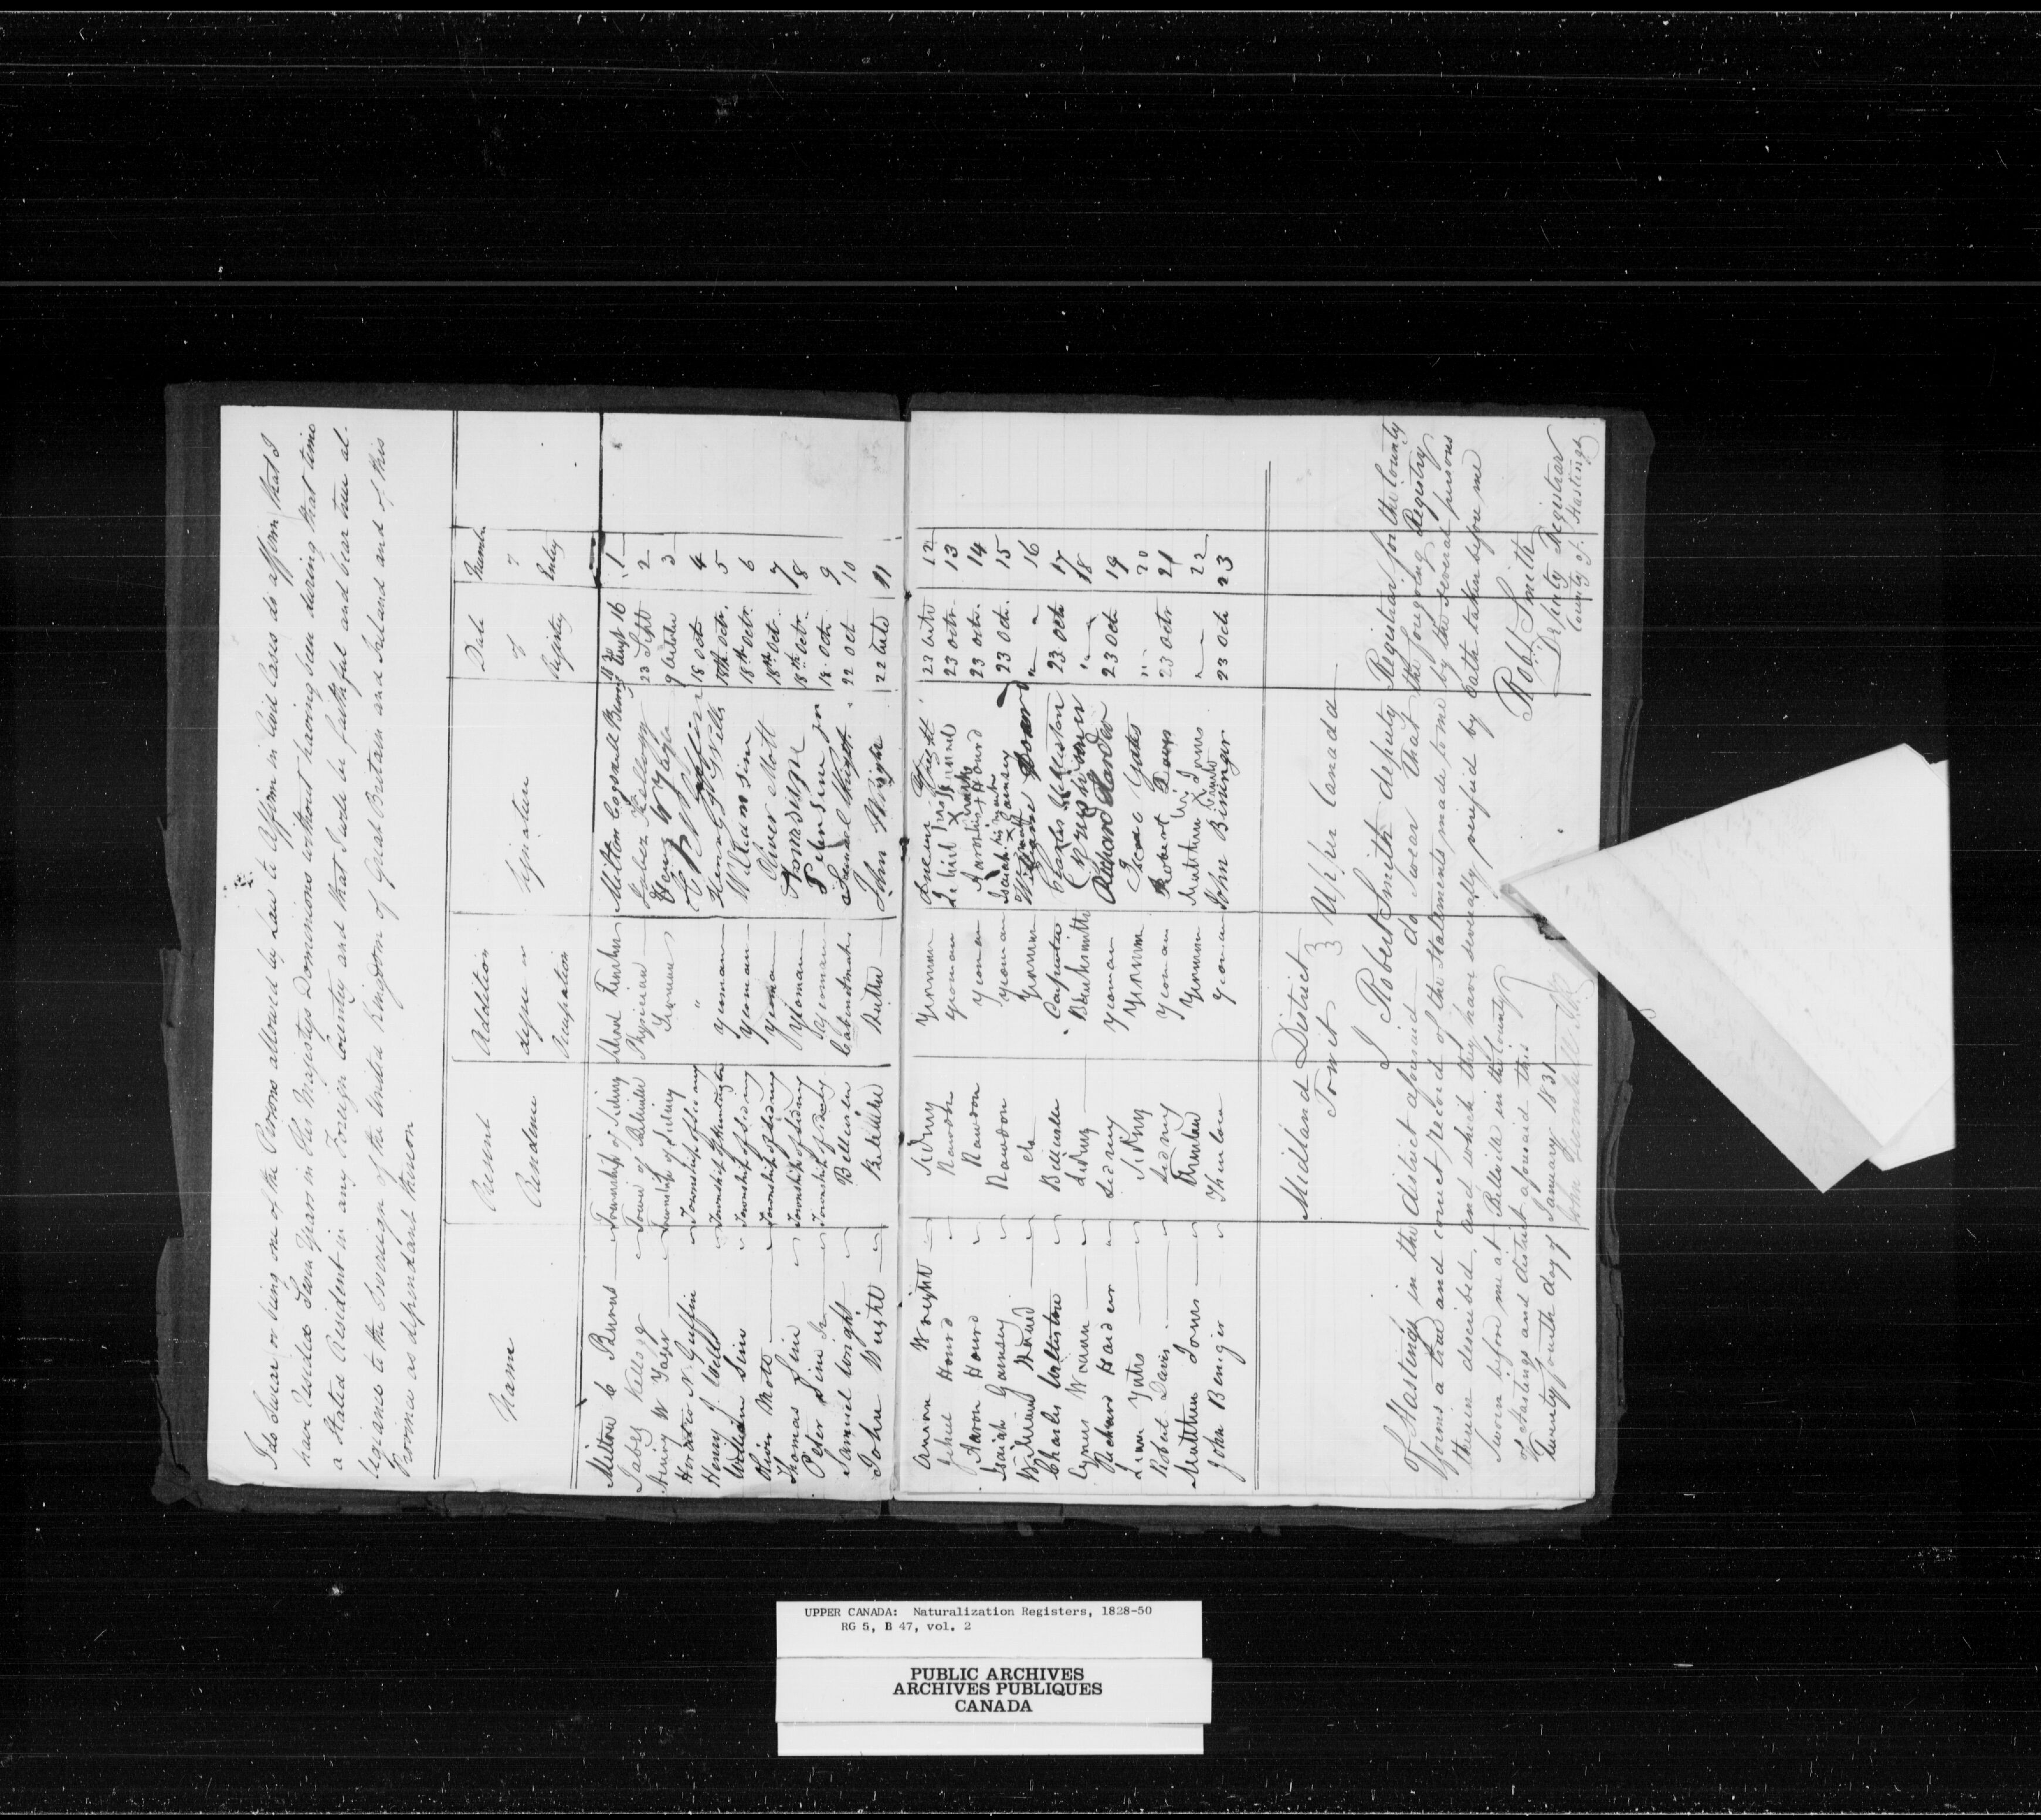 I do Swear or being one of the Persons allowed by Law to Affirm in Civil Cases do affirm that I
have resided Seven Years in His Majestys Dominions without having been during that time
a Stated Resident in any Foreign Country and that I will be faithful and bear true al-
legiance to the Sovereign of the United Kingdom of Great Britain and Ireland and of this
Province as dependant thereon
Name Present Residence Addition degree or Occupation Signature Date of Registry Number of Entry
Milton C Burns Township of Sidney School Teacher Milton Cogswell Burns 1830 Augt 16 1
Kellogg Town of Belleville Physician Kellogg 23 Sept 2
Henry W Yager Township of Sidney Yeoman Henry W Yager 9 October 3
Horatio N. Township of Sidney " 18 Oct 4
Henry J. Wells Township of Huntingdon yeoman Henry J. Wells 18th Octr. 5
William Sine Township of Sidney yeoman William Sine 18th Octr. 6
Oliver Mott Township of Sidney yeoman Oliver Mott 18th Oct. 7
Thomas Sine Township of Sidney yeoman Thomas Sine 18th Octr. 8
Peter Sine Jr Township of Sidney yeoman Peter Sine jr 18 Oct 9
Samuel Wright Belleville Cabinetmaker Samuel Wright 22 Oct 10
John Wright Belleville John Wright 22 Octr 11
Wright Sidney Yeoman Wright 22 Octr 12
Jehiel Rawdon yeoman Jehiel his X mark 23 Octr. 13
Aaron Rawdon yeoman Aaron his X mark 23 Octr. 14
Isaiah Garnsey Rawdon yeoman Isaiah his X mark Garnsey 23 Oct. 15
William do Yeoman William " " 16
Charles Belleville Carpenter Charles 23 Oct 17
Cyrus Sidney Blacksmith Cyrus " " 18
Richard Sidney yeoman Richard 23 Oct 19
Yates Sidney yeoman Yates " " 20
Robert Davis Sidney Yeoman Robert 23 Octr 21
Matthew Jones Yeoman Matthew his X mark Jones " 22
John Beniger Thurlow yeoman John Bininger 23 Oct 23
Midland District
To wit } Upper Canada
I Robert Smith deputy Registrar for the County
of Hastings in the district aforesaid do Swear that the foregoing Registry
forms a true and correct record of the Statements made to me by the several persons
therein described, and which they have severally verified by oath taken before me
Sworn before me at Belleville in the County
of Hastings and district aforesaid this
Twenty fourth day of January 1831
Robt Smith
Deputy Registrar
County of Hastings
UPPER CANADA: Naturalization Registers, 1828-50
RG 5, B 47, vol. 2
PUBLIC ARCHIVES
ARCHIVES PUBLIQUES
CANADA